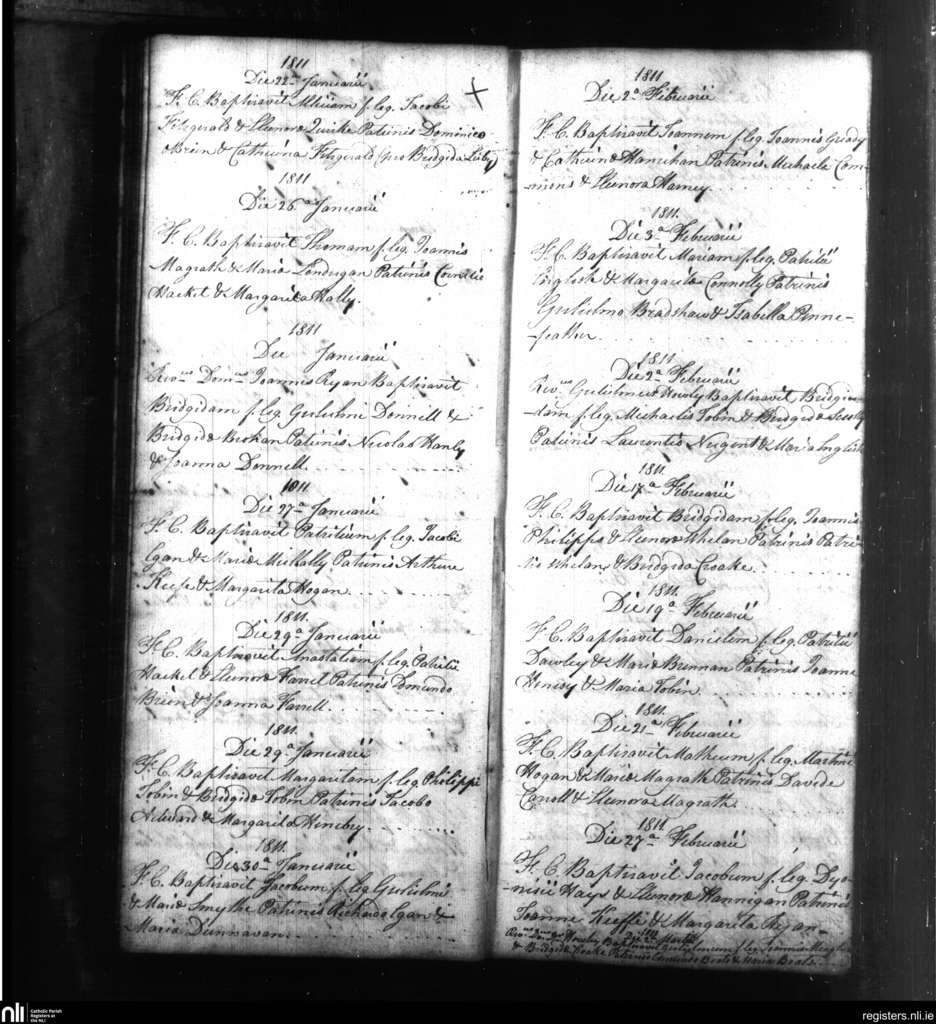 1811
Die 22a Januarii
F. C. Baptizavit Miliam f. leg. Jacobi
Fitzgerald & Eleonora Quirke Patrinis Dominico
Brien & Catherina Fitzgerald (pro Bridgida)
1811
Die 26a Januarii
F. C. Baptizavit Thomam f. leg. Joannis
Magrath & Maria Londrigan Patrinis Cornelio
Hacket & Margarita Hally.
1811
Die Januarii
Revdus Domnus Joannis Ryan Baptizavit
Bridgidam f. leg. Gulielmi Donnell &
Bridgida Brohan Patrinis Nicolas Hanly
& Joanna Donnell.
1811
Die 27a Januarii
F. C. Baptizavit Patritium f. leg. Jacobi
Egan & Maria Patrinis Arthuro
Keefe & Margarita Hogan.
1811.
Die 29a Januarii
F. C. Baptizavit Anastatiam f. leg. Patritii
Hacket & Eleonora Farrel Patrinis Edmundo
Brien & Joanna Farrell.
1811.
Die 29a Januarii
F. C. Baptizavit Margaritam f. leg. Philippi
Tobin & Bridgida Tobin Patrinis Jacobo
Aylward & Margarita Heneby.
1811.
Die 30a Januarii
F. C. Baptizavit Jacobum f. leg. Gulielmi
& Maria Smythe Patrinis Richardo Egan &
Maria Dunnavan.
1811
Die 2a Februarii
F. C. Baptizavit Joannem f. leg. Joannis Grady
& Catherine Hanrihan Patrinis Michaele Com-
-mins & Eleonora Harney.
1811.
Die 3a Februarii
F. C. Baptizavit Mariam f. leg. Patritii
English & Margarita Connolly Patrinis
Gulielmo Bradshaw & Isabella Penne-
-feather.
1811
Die 9a Februarii
Revdus Gulielmus Hawly Baptizavit Bridgi-
-dam f. leg. Michaelis Tobin & Bridgida
Patrinis Laurentio Nugent & Maria English
1811.
Die 17a Februarii
F. C. Baptizavit Bridgidam f. leg. Joannis
Philipps & Eleonora Whelan Patrinis Patri-
-tio Whelan & Bridgida Croake.
1811.
Die 19a Februarii
F. C. Baptizavit Danielem f. leg. Patritii
Dawley & Maria Brennan Patrinis Joanne
Henisy & Maria Tobin.
1811.
Die 21a Februarii
F. C. Baptizavit Matheum f. leg. Martini
Hogan & Maria Magrath Patrinis Davide
Carroll & Eleonora Magrath.
1811.
Die 27a Februarii
F. C. Baptizavit Jacobum f. leg. Dyo-
-nisii Hays & Eleonora Hannigan Patrinis
Joanne Keeffe & Margarita Ryan.
1811
Baptizavit f. leg.
& Bridgida Croake Patrinis Edmundo & Maria
nli
Catholic Parish
Registers at
the NLI
registers.nli.ie